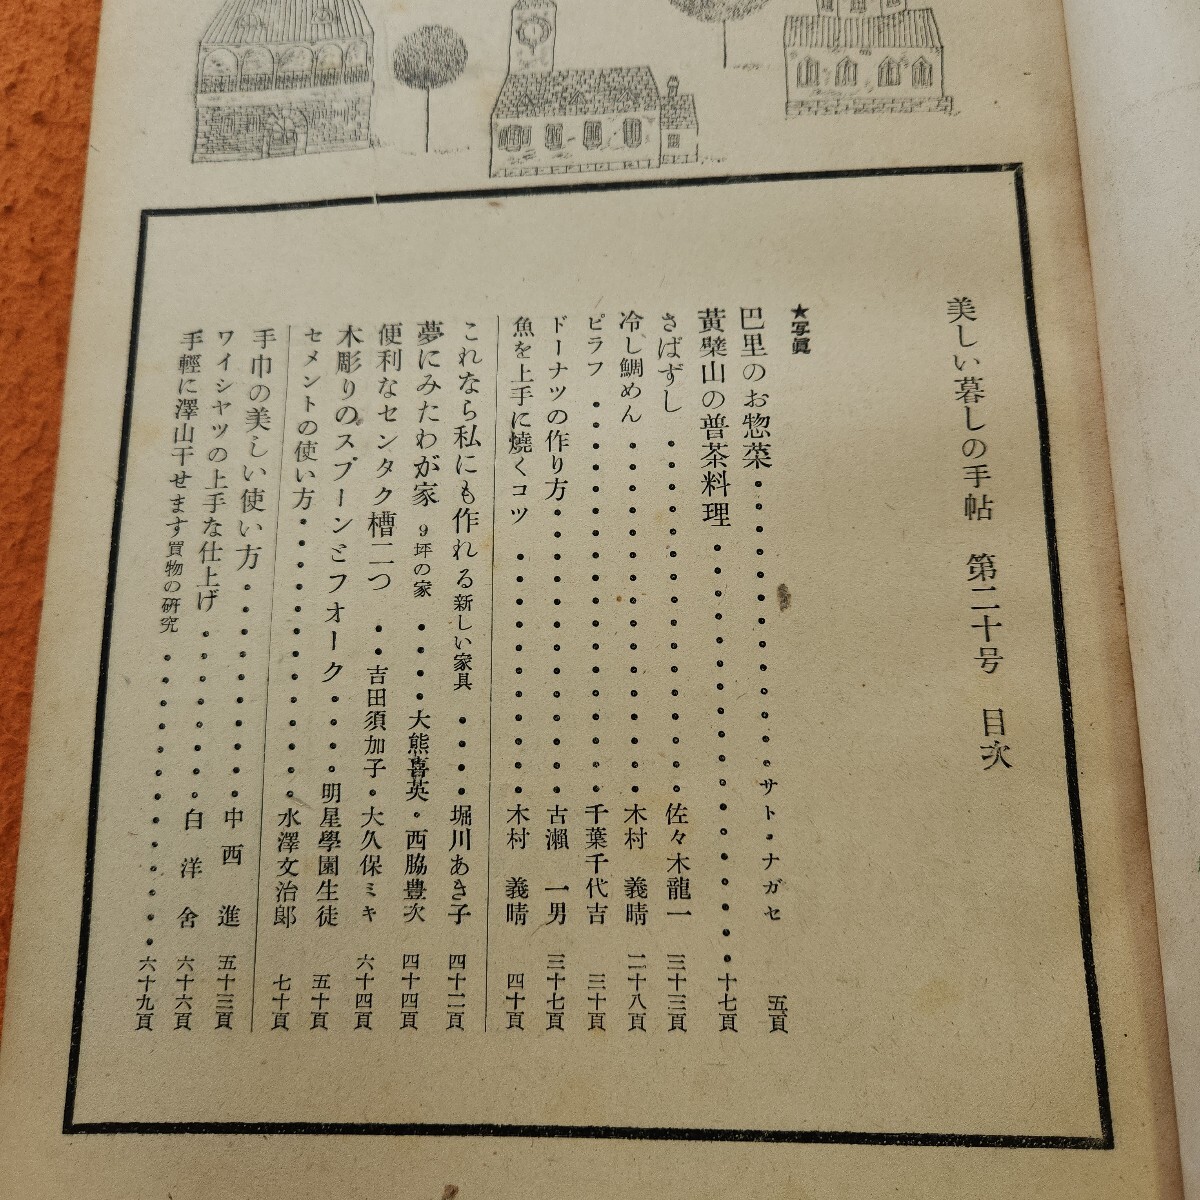 美しい暮しの手帖 第二十号 目次
★写眞
巴里のお惣菜・・・・・・・・・・・・・サト・ナガセ 五頁
黄檗山の普茶料理・・・・・・・・・・・・・・・・・・十七頁
さばずし・・・・・・・・・・・・・・・・佐々木龍一 三十三頁
冷し鯛めん・・・・・・・・・・・・・・・木村 義晴 二十八頁
ピラフ・・・・・・・・・・・・・・・・・千葉千代吉 三十頁
ドーナツの作り方・・・・・・・・・・・・古瀬 一男 三十七頁
魚を上手に燒くコツ・・・・・・・・・・・木村 義晴 四十頁
これなら私にも作れる新しい家具・・・・堀川あき子 四十二頁
夢にみたわが家 9坪の家・・・・大熊喜英・西脇豊次 四十四頁
便利なセンタク槽二つ・・吉田須加子・大久保ミキ 六十四頁
木彫りのスプーンとフオーク・・・・明星學園生徒 五十頁
セメントの使い方・・・・・・・・・・・・水澤文治郞 七十頁
手巾の美しい使い方・・・・・・・・・・中西 進 五十三頁
ワイシヤツの上手な仕上げ・・・・・・・・白洋舍 六十六頁
手輕に澤山干せます買物の研究・・・・・・・・・・・・・六十九頁